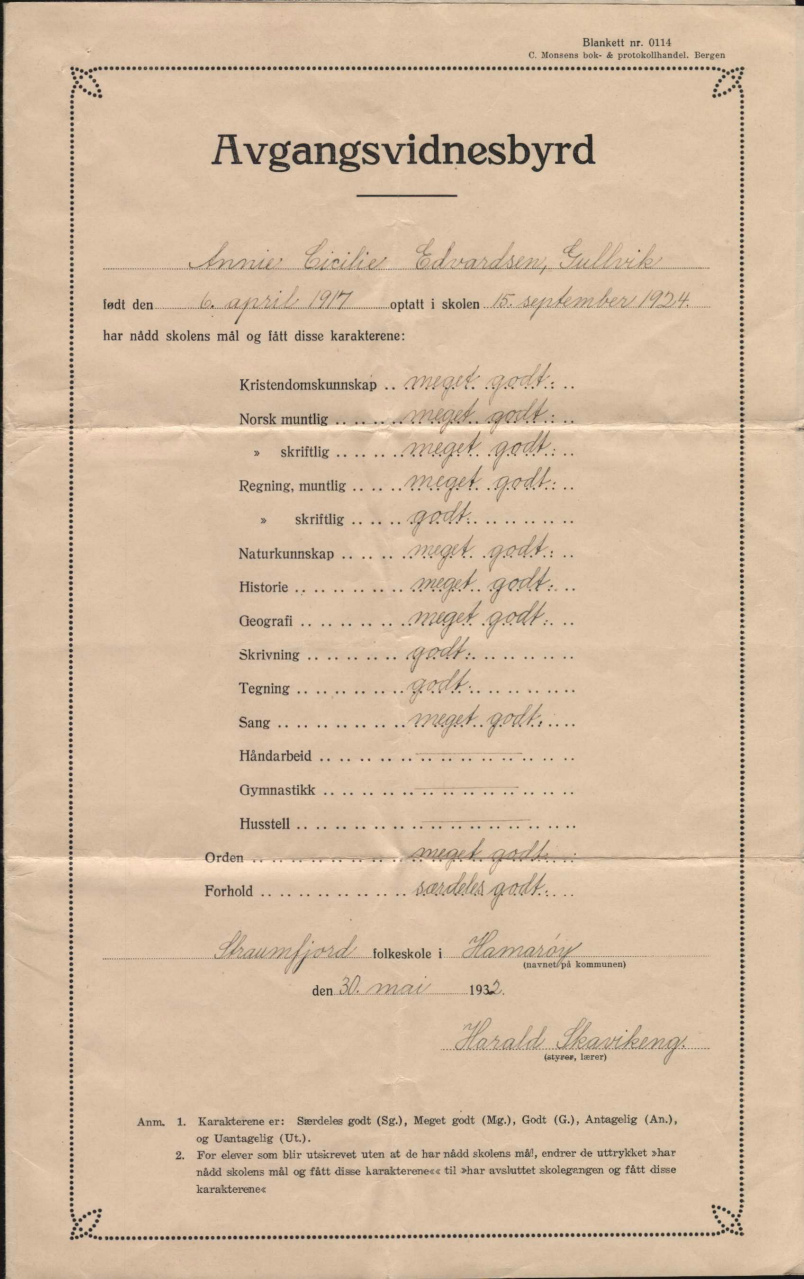 Blankett nr. 0114
C. Monsens bok- & protokollhandel. Bergen
Avgangsvidnesbyrd
Annie Cicilie Edvardsen, Gullvik
født den 6. april 1917 optatt i skolen 15. september 1924.
har nådd skolens mål og fått disse karakterene:
Kristendomskunnskap .. meget godt.
Norsk muntlig meget godt.
» skriftlig meget godt.
Regning, muntlig meget godt.
» skriftlig godt.
Naturkunnskap meget godt.
Historie meget godt.
Geografi meget godt.
Skrivning godt.
Tegning godt.
Sang meget godt.
Håndarbeid
Gymnastikk
Husstell
Orden meget godt.
Forhold særdeles godt.
Straumfjord folkeskole i Hamarøy
(navnet på kommunen)
den 30. mai 1932.
Harald Skavikeng.
(styrer, lærer)
Anm. 1. Karakterene er: Særdeles godt (Sg.), Meget godt (Mg.), Godt (G.), Antagelig (An.),
og Uantagelig (Ut.).
2. For elever som blir utskrevet uten at de har nådd skolens mål, endrer de uttrykket »har
nådd skolens mål og fått disse karakterene«« til »har avsluttet skolegangen og fått disse
karakterene«